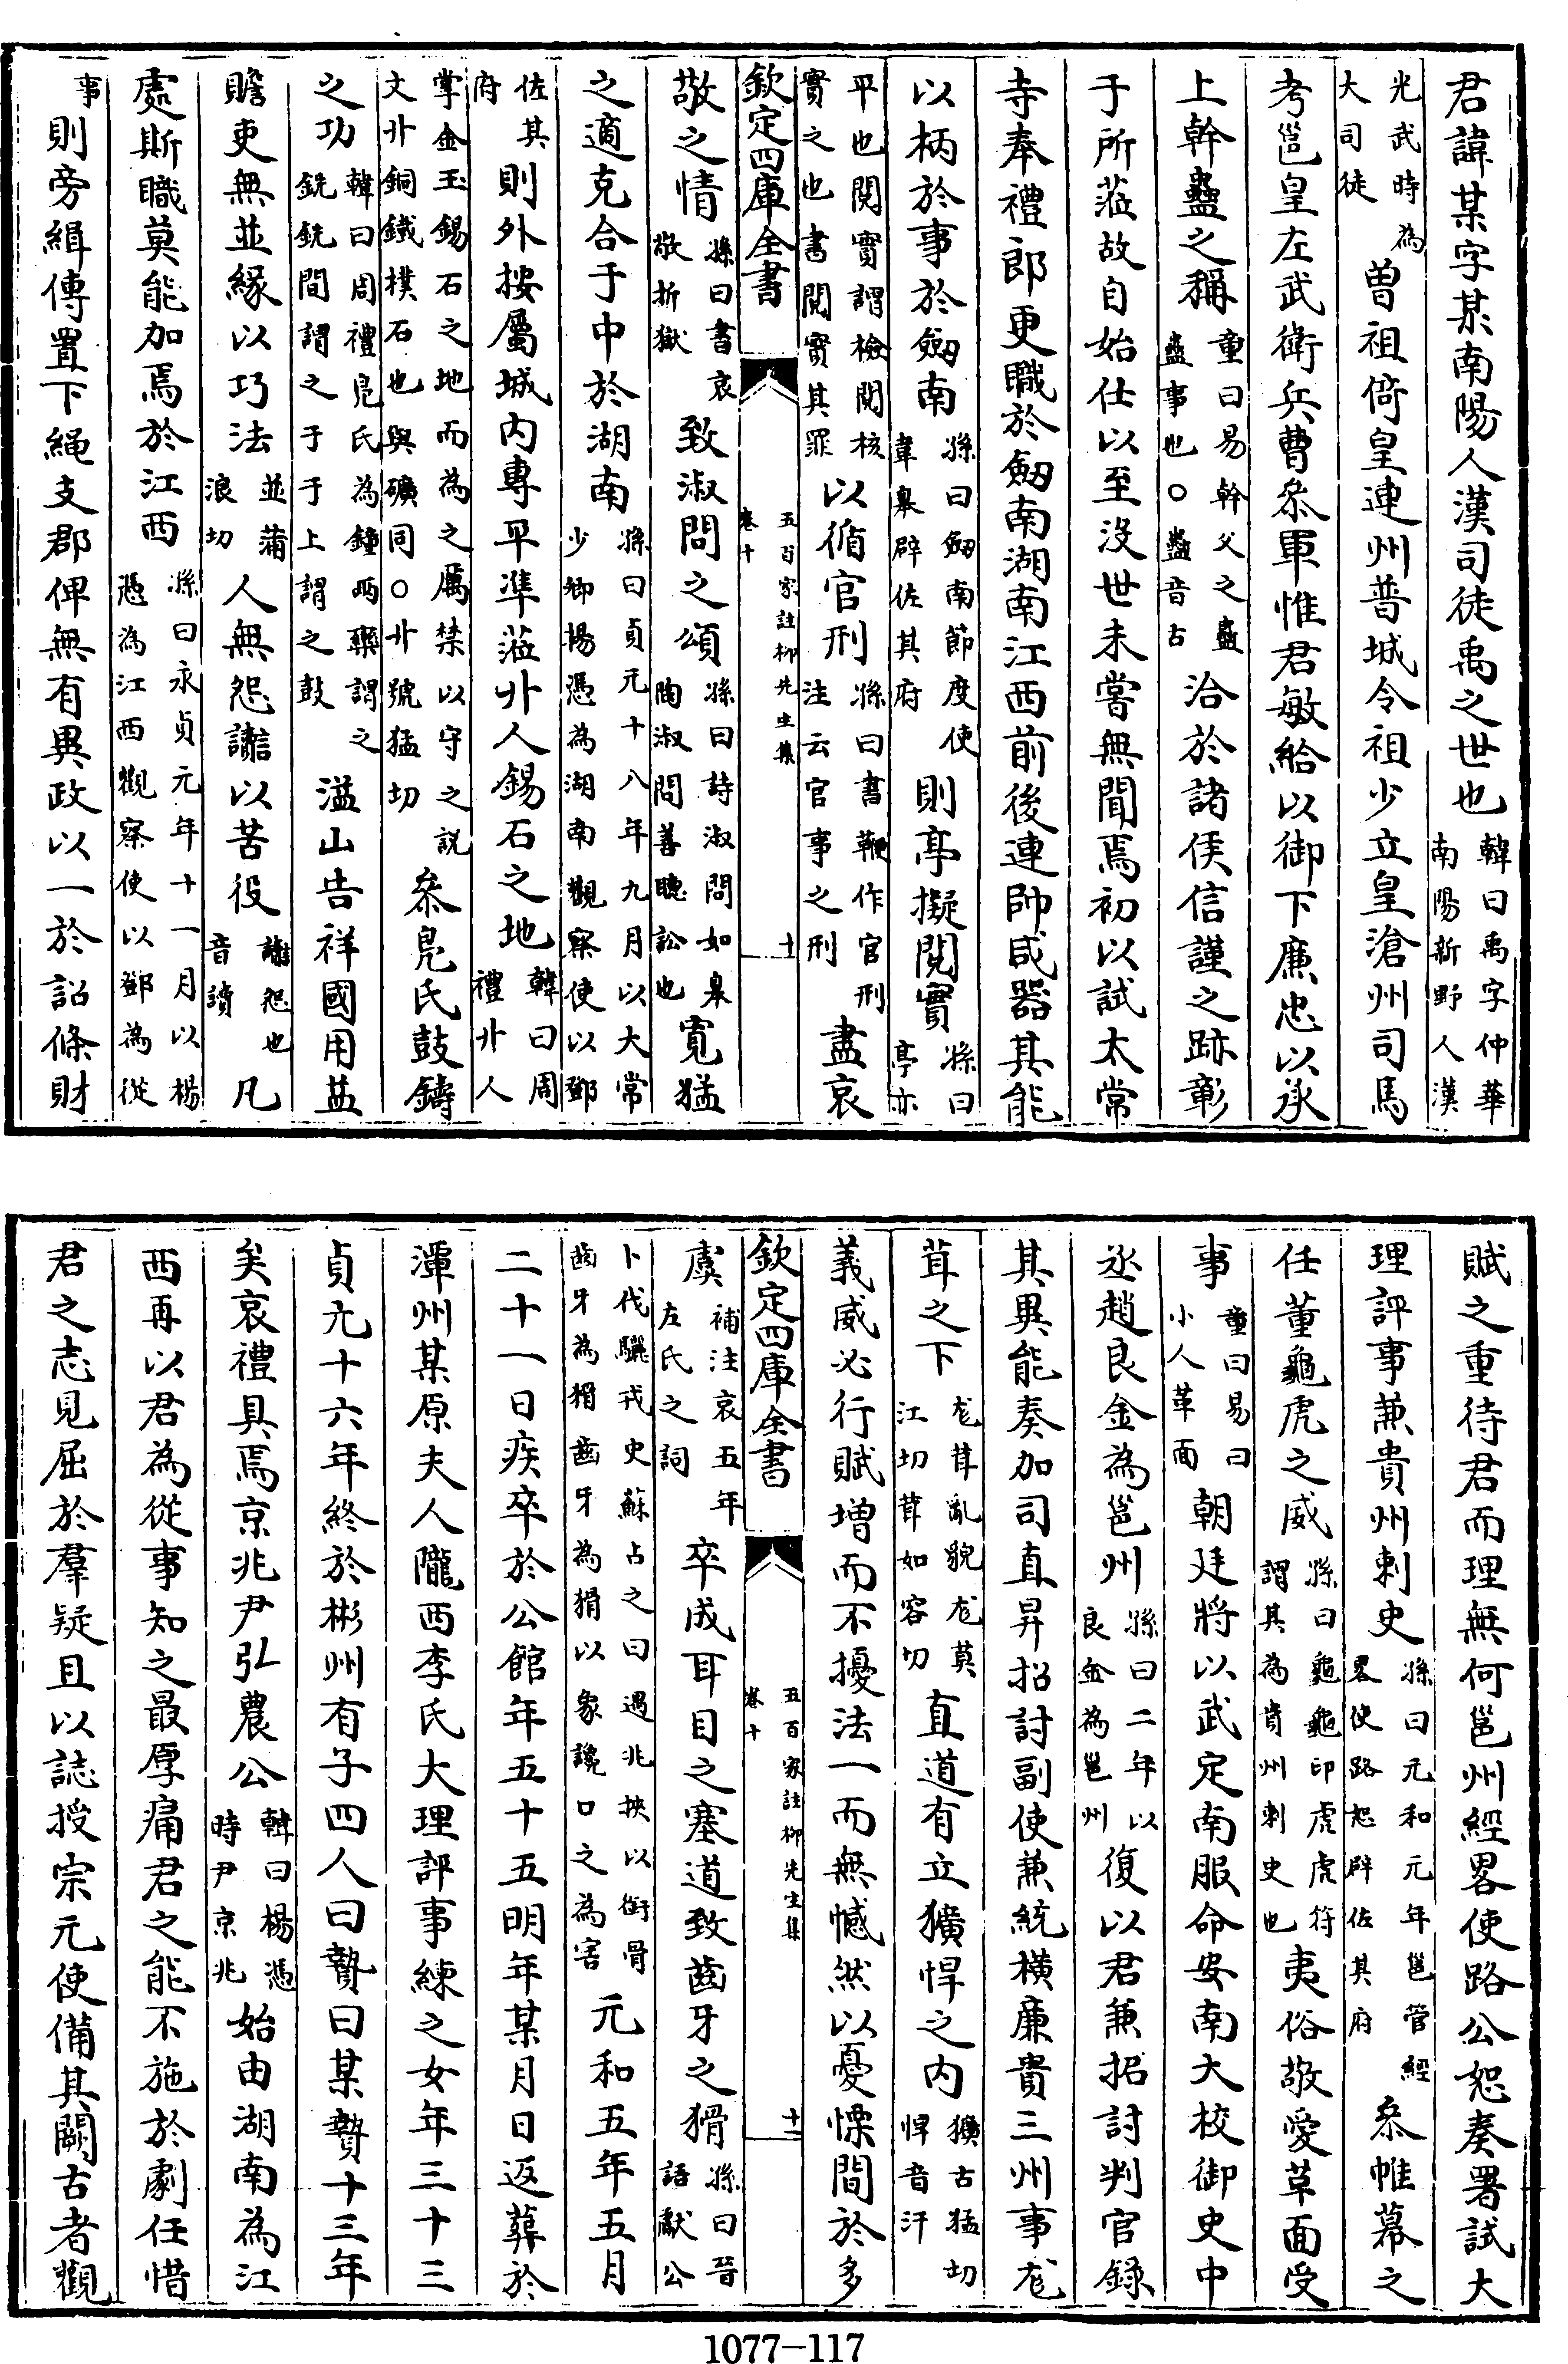 君諱某字某南陽人漢司徒禹之世也韓曰禹字仲華南陽新野人漢
光武時為大司徒曽祖倚皇連州普城令祖少立皇滄州司馬
考邕皇左武衛兵曹叅軍惟君敏給以御下廉忠以承
上幹蠱之稱童曰易幹父之蠱蠱事也○蠱音古洽於諸侯信謹之跡彰
于所蒞故自始仕以至沒世未嘗無聞焉初以試太常
寺奉禮郎更職於劒南湖南江西前後連帥咸器其能
以柄於事於劒南孫曰劒南節度使韋臯辟佐其府則亭擬閱實孫曰亭亦
平也閱實謂檢閱核實之也書閱實其罪以循官刑孫曰書鞭作官刑注云官事之刑盡哀
欽定四庫全書 五百家註柳先生集卷十 十一
敬之情孫曰書哀敬折獄致淑問之頌孫曰詩淑問如臯陶淑問善聽訟也寛猛
之適克合于中於湖南孫曰貞元十八年九月以大常少卿楊憑為湖南觀察使以鄧
佐其府則外按屬城内專平準蒞丱人錫石之地韓曰周禮丱人
掌金玉錫石之地而為之厲禁以守之説文丱銅鐵樸石也與礦同○丱號猛切叅鳬氏鼓鑄
之功韓曰周禮鳬氏為鐘兩欒謂之銑銑間謂之于于上謂之鼓溢山告祥國用益
贍吏無並緣以巧法並蒲浪切人無怨讟以苦役讟怨也音讀凡
處斯職莫能加焉於江西孫曰永貞元年十一月以楊憑為江西觀察使以鄧為從
事則旁緝傳置下繩支郡俾無有異政以一於詔條財
賦之重待君而理無何邕州經畧使路公恕奏署試大
理評事兼貴州刺史孫曰元和元年邕管經畧使路恕辟佐其府叅帷幕之
任董龜虎之威孫曰龜龜印虎虎符謂其為貴州刺史也夷俗敬愛草面受
事童曰易曰小人革面朝廷將以武定南服命安南大校御史中
丞趙良金為邕州孫曰二年以良金為邕州復以君兼招討判官錄
其異能奏加司直昇招討副使兼統横廉貴三州事尨
茸之下尨茸亂貌尨莫江切茸如容切直道有立獷悍之内獷古猛切悍音汗
義威必行賦増而不擾法一而無憾然以憂慄間於多
欽定四庫全書 五百家註柳先生集卷十 十二
虞補注哀五年左氏之詞卒成耳目之塞道致齒牙之猾孫曰晉語獻公
卜代驪戎史蘇占之曰遇兆挾以銜骨齒牙為猾齒牙為猾以象讒口之為害元和五年五月
二十一日疾卒於公館年五十五明年某月日返葬於
潭州某原夫人隴西李氏大理評事練之女年三十三
貞元十六年終於彬州有子四人曰贄曰某贄十三年
矣哀禮具焉京兆尹弘農公韓曰楊憑時尹京兆始由湖南為江
西再以君為從事知之最厚痛君之能不施於劇任惜
君之志見屈於羣疑且以誌授宗元使備其闕古者觀
1077-117